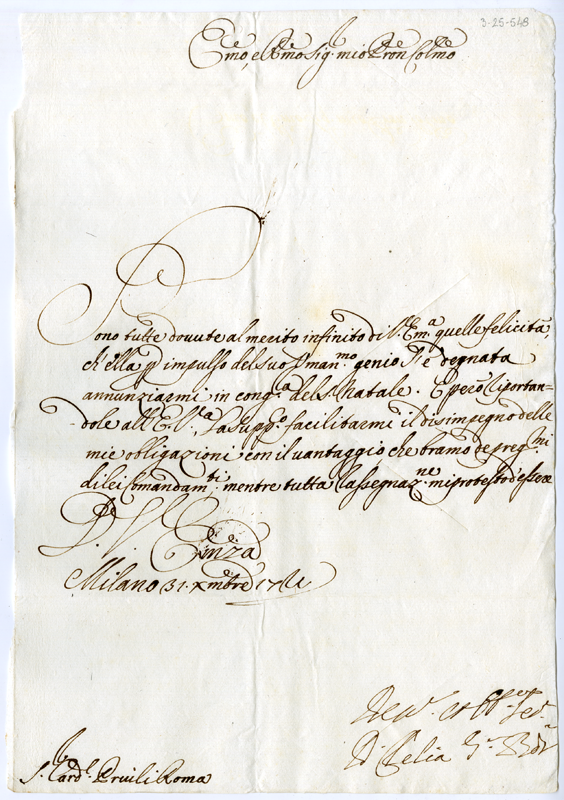 3-25-548
Em̃o, e Rm̃o Sig.r mio Pron Colm̃o
Sono tutte dovute al merito infinito di V. Em.a quelle felicità,
ch'ella p impulso del suo Vman.mo genio s'è degnata
annunziarmi in cong.ra del S. Natale. E però riportan=
dole all'E. V.a, la supp.o facilitarmi il disimpegno delle
mie obligazioni con il vantaggio che bramo de preg.mi
di lei Comandam.ti, mentre tutta rassegnaz.ne mi protesto d'essere
D. V. Em̃za
Milano 31. Xmbre
Dev. et Obb. Ser.
D. Celia
S. Card.l Priuli Roma